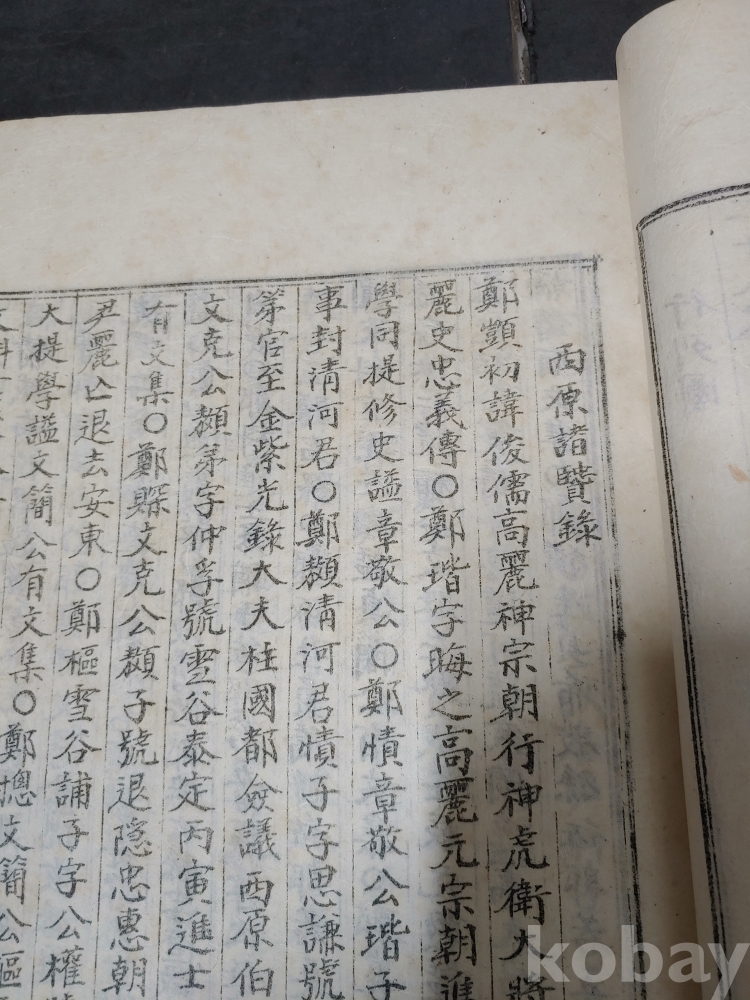 西原諸賢錄
鄭顗初諱俊儒高麗神宗朝行神虎衛大將
麗史忠義傳○鄭瑎字晦之高麗元宗朝進
學同提修史謚章敬公○鄭㥽章敬公瑎子
事封清河君○鄭䫨清河君㥽子字思謙號
第官至金紫光錄大夫柱國都僉議西原伯
文克公䫨弟字仲孚號雪谷泰定丙寅進士
有文集○鄭賝文克公䫨子號退隱忠惠朝
尹麗亡退去安東○鄭樞雪谷誧子字公權
大提學謚文簡公有文集○鄭摠文簡公樞
kobay